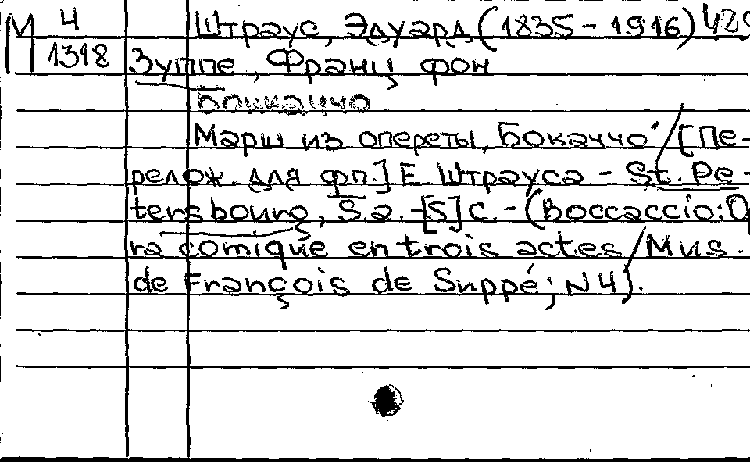 М 4 Штраус, Эдуард (1835-1916)
1318 Зуппе, Франц фон
Боккаччо
Марш из опереты „Бокаччо" / [Пе-
релож. для фп.] Е. Штрауса - St. Pe-
tersbourg, S.a. - [5] c. - (Boccaccio: Op
ra comique en trois actes / Mus.
de François de Suppé; N 4).